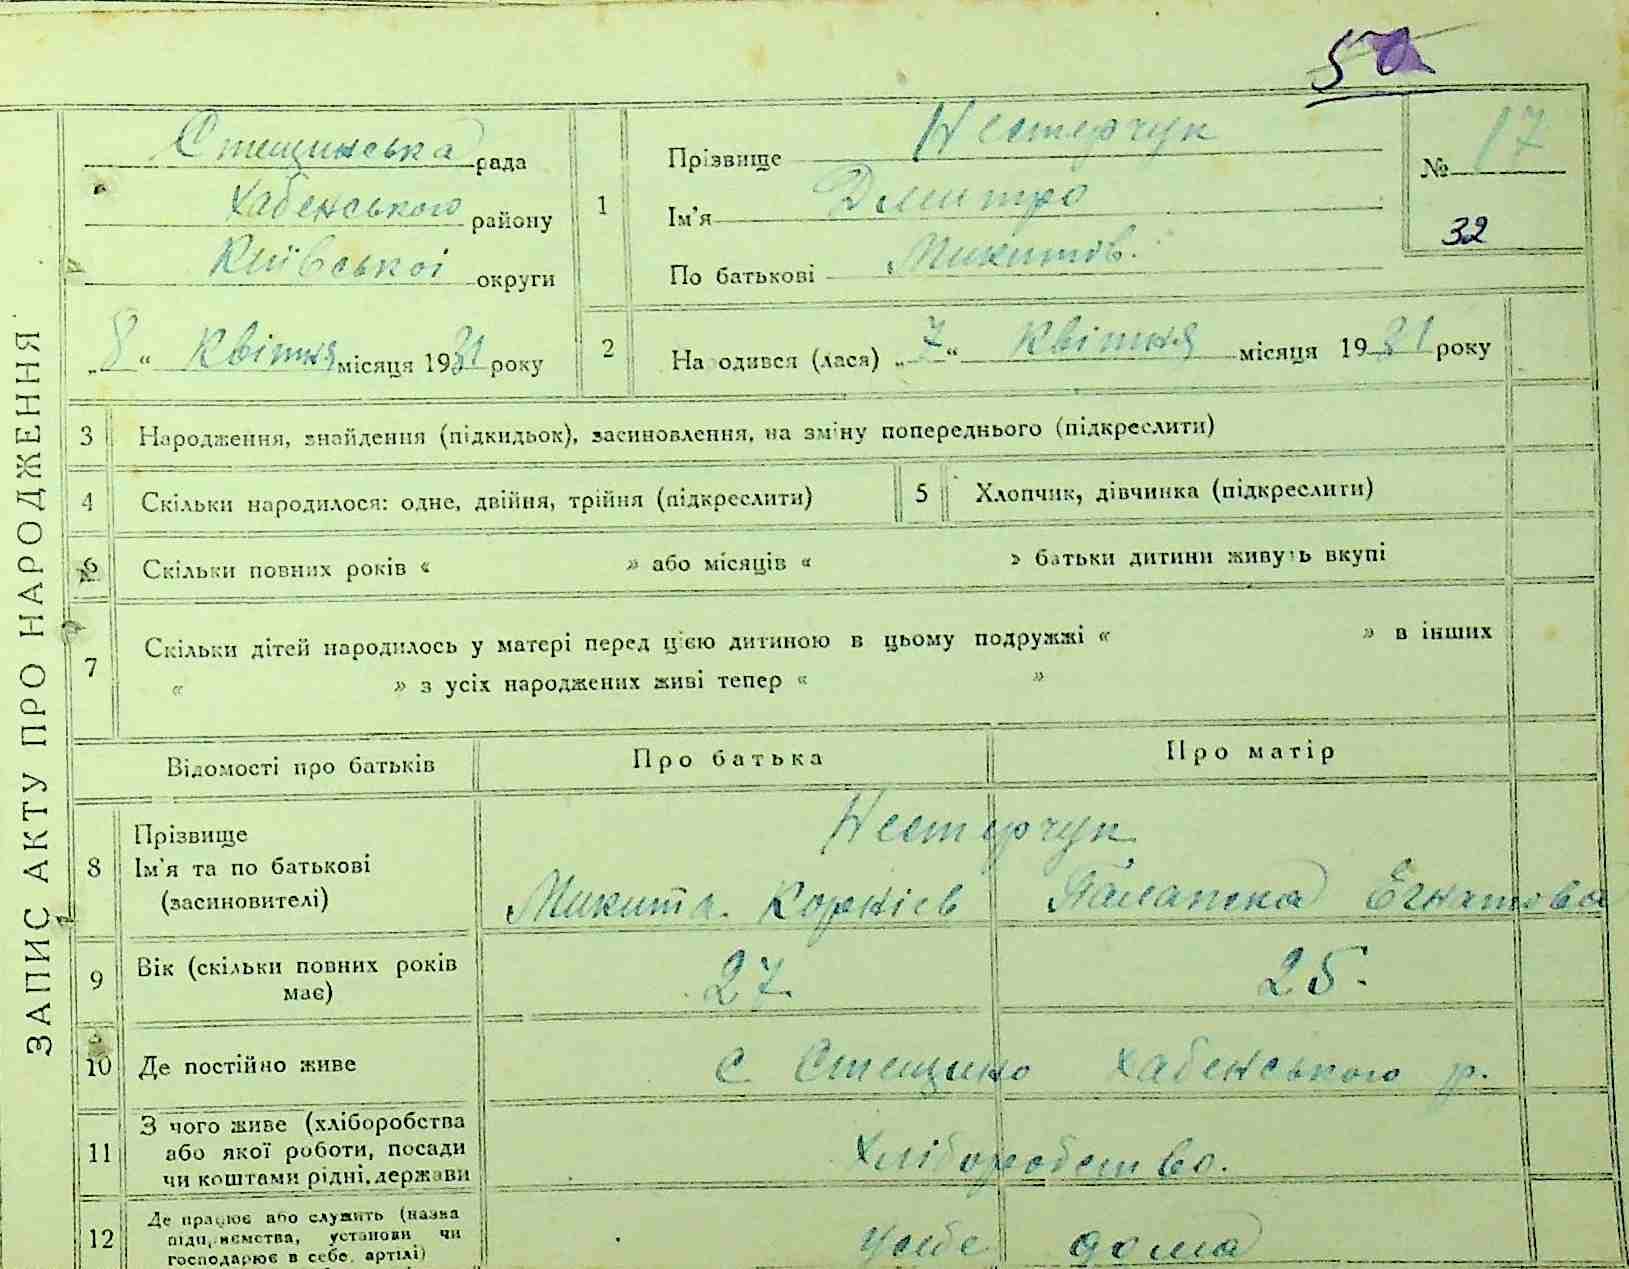 50
ЗАПИС АКТУ ПРО НАРОДЖЕННЯ
Стещинська рада
Хабенського району
Київської округи
„8“ Квітня місяця 1931 року
1 Прізвище Нестерчук
Ім'я Дмитро
По батькові Микитів.
№ 17
32
2 Народився (лася) „7“ Квітня місяця 1931 року
3 Народження, знайдення (підкидьок), засиновлення, на зміну попереднього (підкреслити)
4 Скільки народилося: одне, двійня, трійня (підкреслити) 5 Хлопчик, дівчинка (підкреслити)
6 Скільки повних років « » або місяців « » батьки дитини живуть вкупі
7 Скільки дітей народилось у матері перед цією дитиною в цьому подружжі « » в інших
« » з усіх народжених живі тепер « »
Відомості про батьків Про батька Про матір
8 Прізвище Нестерчук
Ім'я та по батькові
(засиновителі) Микита Корнієв Палапека Егнатова
9 Вік (скільки повних років 27. 25.
має)
10 Де постійно живе с Стещино Хабенського р.
11 З чого живе (хліборобства
або якої роботи, посади Хліборобство.
чи коштами рідні, держави
12 Де працює або служить (назва
підприємства, установи чи
господарює в себе, артілі) дома